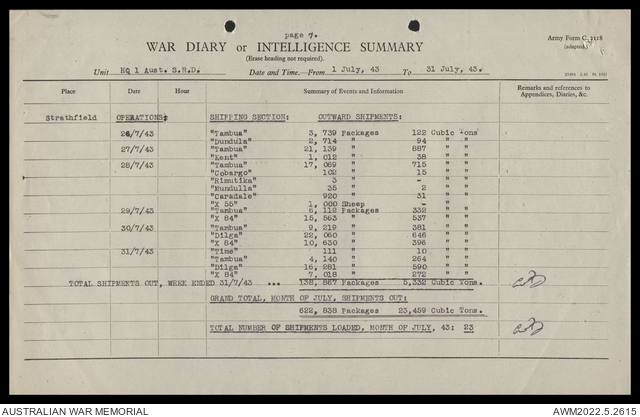 page 7.
Army Form C. 2118
(adapted)
WAR DIARY or INTELLIGENCE SUMMARY
(Erase heading not required).
Unit HQ 1 Aust. S.R.D. Date and Time.—From 1 July, 43 To 31 July, 43.
Place Date Hour Summary of Events and Information Remarks and references to Appendices, Diaries, &c.
Strathfield OPERATIONS: SHIPPING SECTION: OUTWARD SHIPMENTS:
26/7/43 "Tambua" 3, 739 Packages 122 Cubic Tons
"Dundula" 2, 714 " 94 " "
27/7/43 "Tambua" 21, 139 " 887 " "
"Kent" 1, 012 " 38 " "
28/7/43 "Tambua" 17, 069 " 715 " "
"Cobargo" 102 " 15 " "
"Rimutika" 3 " - " "
"Mundulla" 35 " 2 " "
"Caradale" 920 " 31 " "
"X 55" 1, 000 Sheep - " "
29/7/43 "Tambua" 6, 112 Packages 332 " "
"X 84" 15, 563 " 537 " "
30/7/43 "Tambua" 9, 219 " 381 " "
"Dilga" 22, 060 " 646 " "
"X 84" 10, 630 " 396 " "
31/7/43 "Time" 111 " 10 " "
"Tambua" 4, 140 " 264 " "
"Dilga" 16, 281 " 590 " "
"X 84" 7, 018 " 272 " "
TOTAL SHIPMENTS OUT, WEEK ENDED 31/7/43 ... 138, 867 Packages 5,332 Cubic Tons.
GRAND TOTAL, MONTH OF JULY, SHIPMENTS OUT:
622, 838 Packages 23,459 Cubic Tons.
TOTAL NUMBER OF SHIPMENTS LOADED, MONTH OF JULY, 43: 23
AUSTRALIAN WAR MEMORIAL AWM2022.5.2615